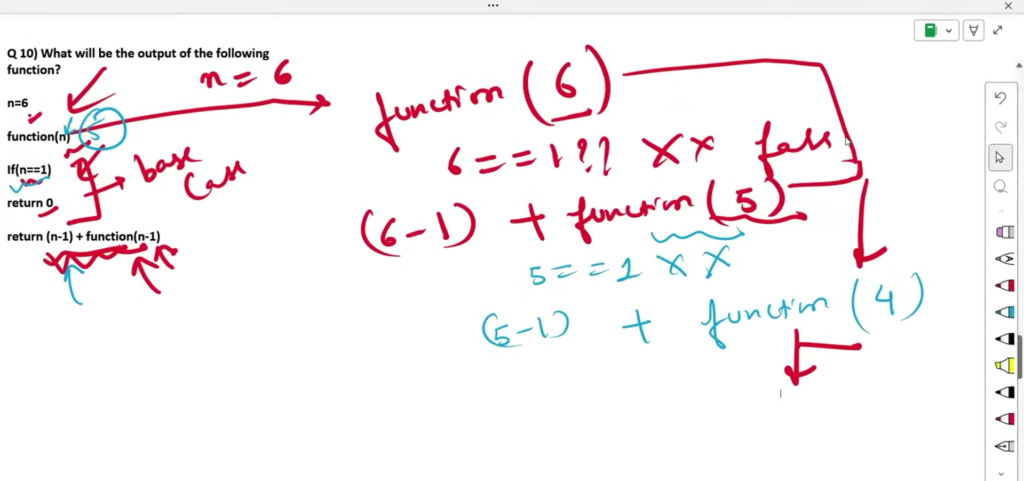 Q 10) What will be the output of the following
function?
n=6
function(n)
If(n==1)
return 0
return (n-1) + function(n-1)
n = 6
base
case
function (6)
6 == 1 ?? XX false
(6-1) + function (5)
5 == 1 XX
(5-1) + function (4)